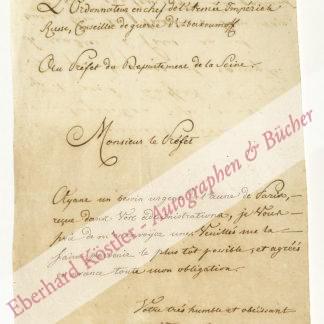 L'Ordonnateur en chef de l'Armée Impériale
Russe, Conseiller de guerre d'Abacoumoff
Au Préfet du Département de la Seine.
Monsieur le Préfet
Ayant un besoin urgent de Paris,
dans Votre administration, je Vous
prie de m'en envoyer une. Veuillez me la
le plus tôt possible, et agréés
d'avance toute mon obligation.
Votre très humble et obéissant
Eberhard Köstler - Autographen & Bücher